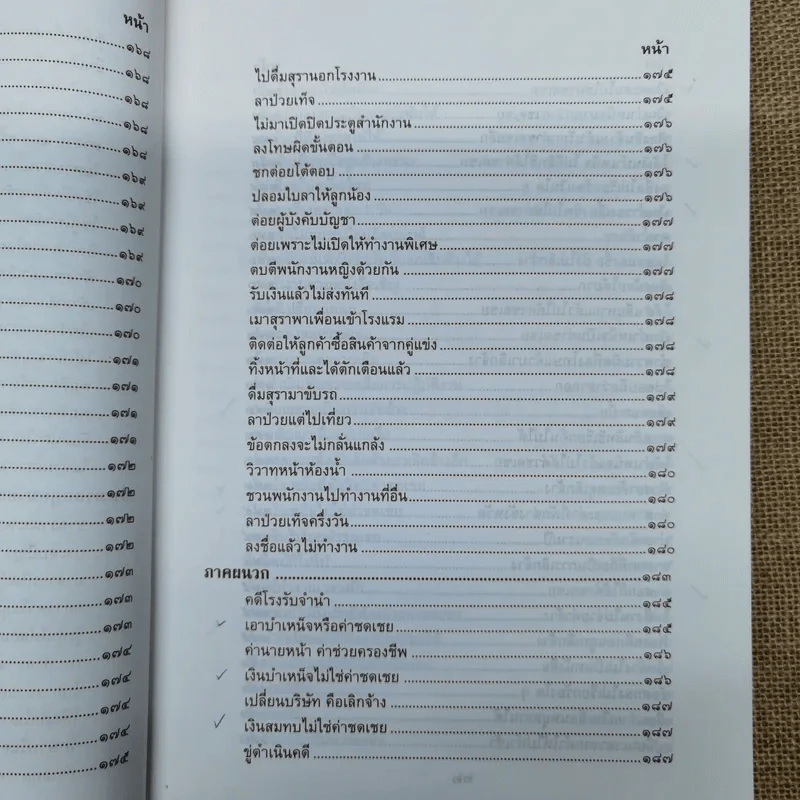 หน้า
๑๖๘
๑๖๘
๑๖๘
๑๖๘
๑๖๘
๑๖๙
๑๖๙
๑๖๙
๑๖๙
๑๗๐
๑๗๐
๑๗๐
๑๗๑
๑๗๑
๑๗๑
๑๗๑
๑๗๒
๑๗๒
๑๗๒
๑๗๒
๑๗๓
๑๗๓
๑๗๓
๑๗๔
๑๗๔
๑๗๔
๑๗๔
๑๗๕
หน้า
ไปดื่มสุรานอกโรงงาน ๑๗๕
ลาป่วยเท็จ ๑๗๕
ไม่มาเปิดปิดประตูสำนักงาน ๑๗๖
ลงโทษผิดขั้นตอน ๑๗๖
ชกต่อยโต้ตอบ ๑๗๖
ปลอมใบลาให้ลูกน้อง ๑๗๖
ต่อยผู้บังคับบัญชา ๑๗๗
ต่อยเพราะไม่เปิดให้ทำงานพิเศษ ๑๗๗
ตบตีพนักงานหญิงด้วยกัน ๑๗๗
รับเงินแล้วไม่ส่งทันที ๑๗๘
เมาสุราพาเพื่อนเข้าโรงแรม ๑๗๘
ติดต่อให้ลูกค้าซื้อสินค้าจากคู่แข่ง ๑๗๘
ทิ้งหน้าที่และได้ตักเตือนแล้ว ๑๗๘
ดื่มสุรามาขับรถ ๑๗๙
ลาป่วยแต่ไปเที่ยว ๑๗๙
ข้อตกลงจะไม่กลั่นแกล้ง ๑๗๙
วิวาทหน้าห้องน้ำ ๑๘๐
ชวนพนักงานไปทำงานที่อื่น ๑๘๐
ลาป่วยเท็จครึ่งวัน ๑๘๐
ลงชื่อแล้วไม่ทำงาน ๑๘๐
ภาคผนวก ๑๘๓
คดีโรงรับจำนำ ๑๘๕
เอาบำเหน็จหรือค่าชดเชย ๑๘๕
ค่านายหน้า ค่าช่วยครองชีพ ๑๘๖
เงินบำเหน็จไม่ใช่ค่าชดเชย ๑๘๖
เปลี่ยนบริษัท คือเลิกจ้าง ๑๘๗
เงินสมทบไม่ใช่ค่าชดเชย ๑๘๗
ขู่ดำเนินคดี ๑๘๗